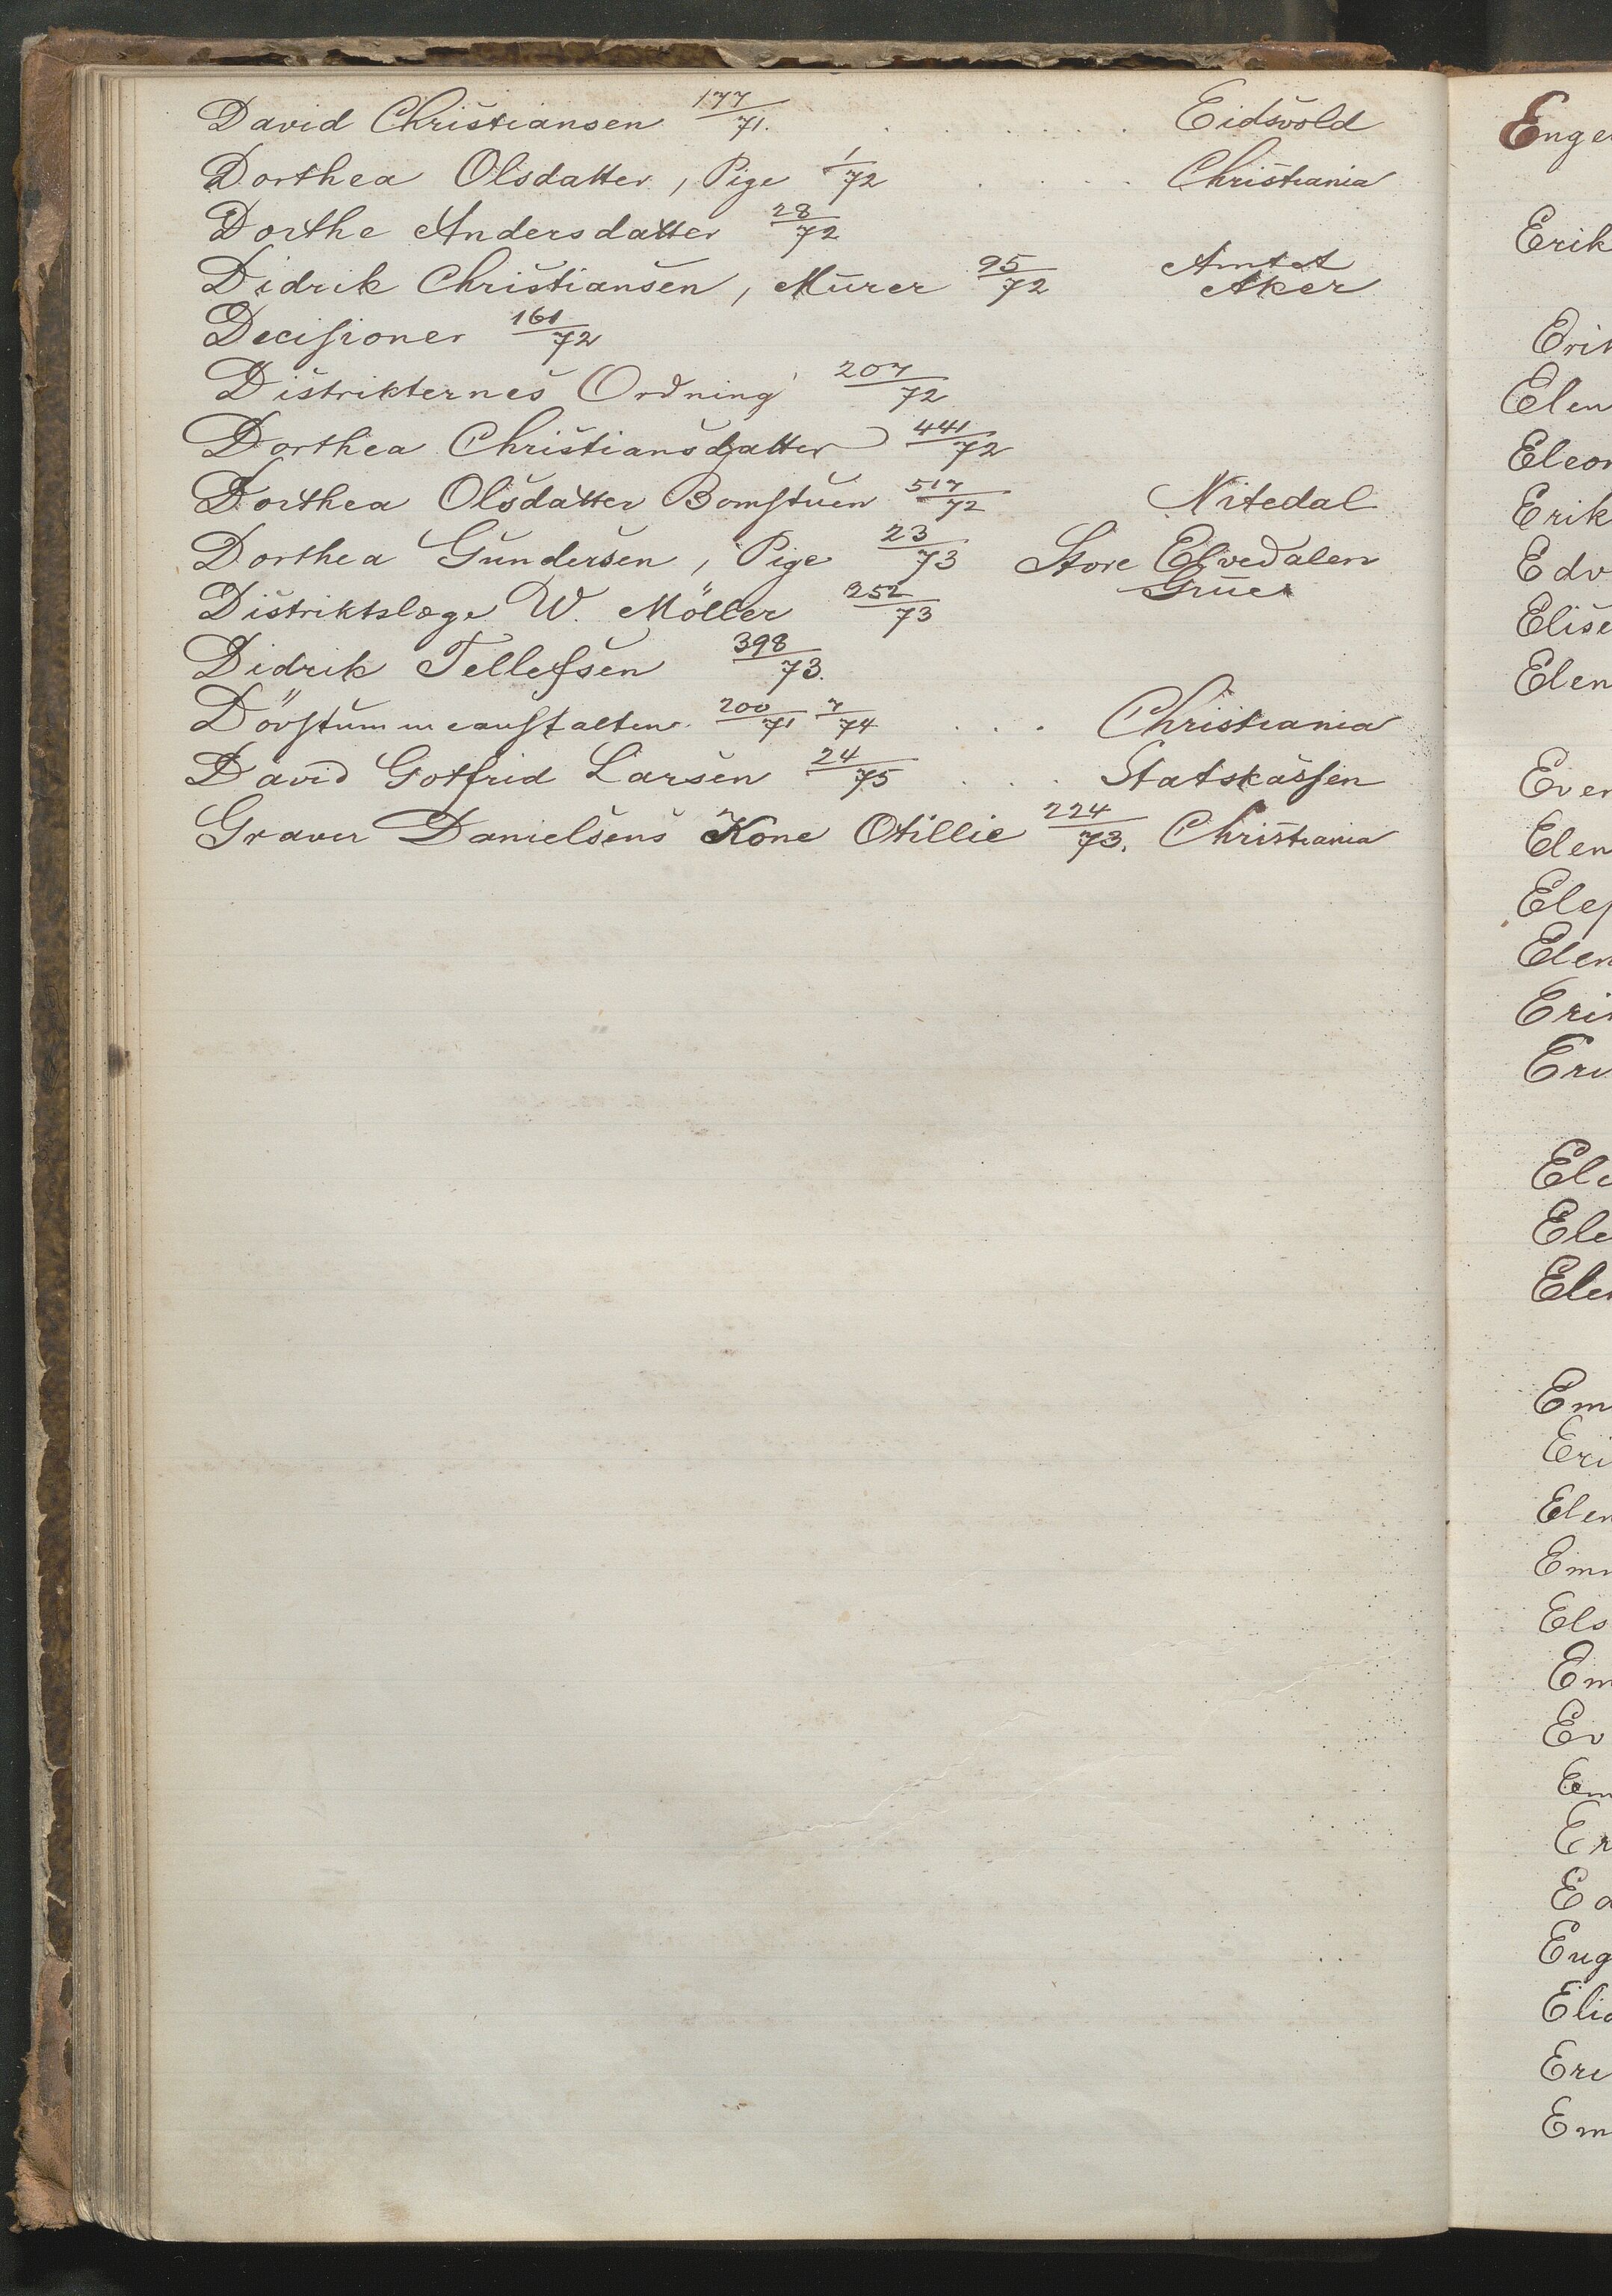 David Christiansen 177/71. . . . . . . Eidsvold
Dorthea Olsdatter, Pige 1/72 . . . . Christiania
Dorthe Andersdatter 28/72
Didrik Christiansen, Murer 95/72 Amtet Aker
Decisioner 161/72
Distrikternes Ordning 207/72
Dorthea Christiansdatter 441/72
Dorthea Olsdatter Bomstuen 517/72 Nitedal
Dorthea Gundersen, Pige 23/73 Store Elvedalen
Distriktslæge W. Möller 252/73 Grue
Didrik Tellefsen 398/73.
Dövstummeanstalten 200/71 7/74 . . . Christiania
David Gotfrid Larsen 24/75 . . . Statskassen
Graver Danielsens Kone Otillie 224/73. Christiania
Enge
Erik
Erik
Elen
Eleon
Erik
Edv
Elise
Elen
Even
Elen
Elen
Em
Eri
Elen
Els
Em
Ev
Eug